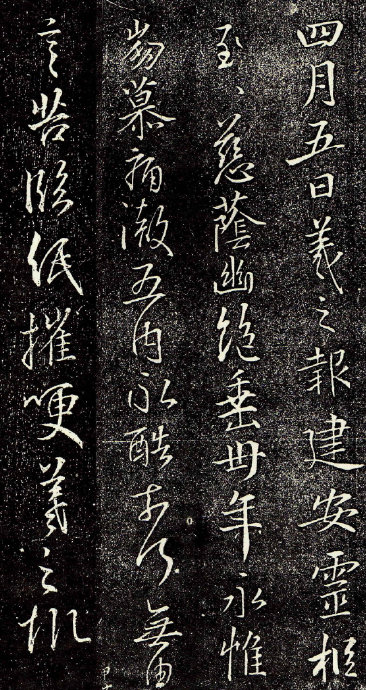 四月五日羲之報建安靈柩
至、慈蔭幽絕垂卅年永惟
崩慕痛徹五內永酷奈何無由
言苦臨紙摧哽羲之報